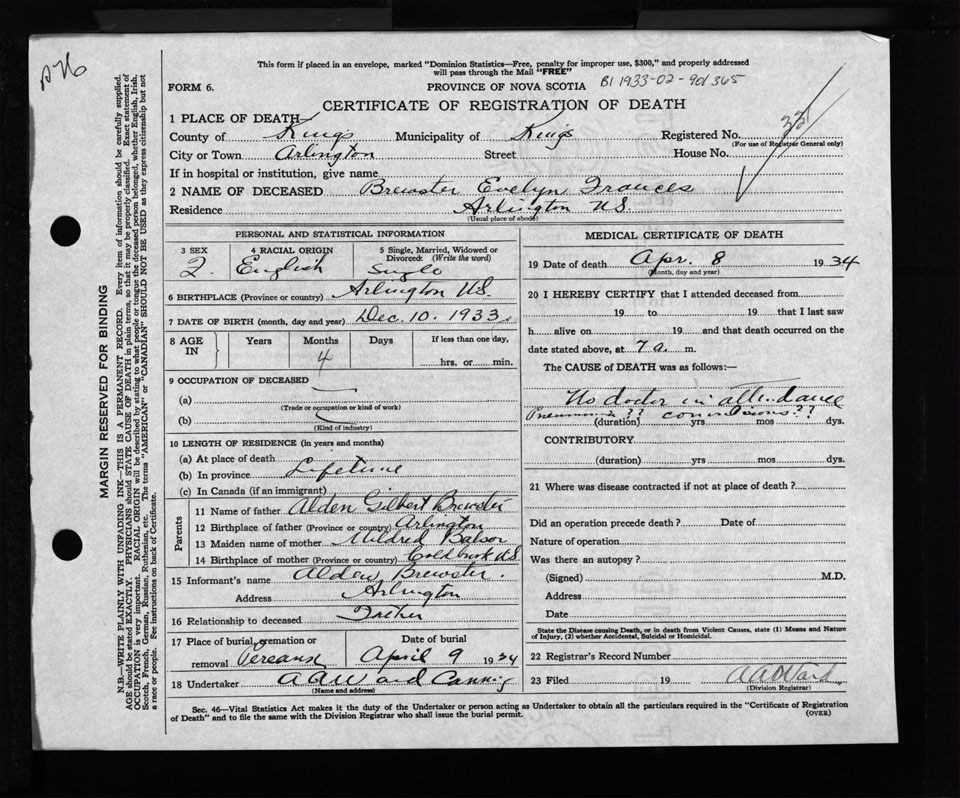 P26
This form if placed in an envelope, marked "Dominion Statistics—Free, penalty for improper use, $300," and properly addressed
will pass through the Mail "FREE"
FORM 6. PROVINCE OF NOVA SCOTIA B1 1933-02-901365
CERTIFICATE OF REGISTRATION OF DEATH
1 PLACE OF DEATH
County of Kings Municipality of Kings Registered No. 331
(For use of Registrar General only)
City or Town Arlington Street House No.
If in hospital or institution, give name
2 NAME OF DECEASED Brewster Evelyn Frances
Residence Arlington N.S.
(Usual place of abode)
PERSONAL AND STATISTICAL INFORMATION
3 SEX 4 RACIAL ORIGIN 5 Single, Married, Widowed or Divorced: (Write the word)
F. English Single
6 BIRTHPLACE (Province or country) Arlington N.S.
7 DATE OF BIRTH (month, day and year) Dec. 10. 1933
8 AGE IN Years Months Days If less than one day,
4 hrs. or min.
9 OCCUPATION OF DECEASED
(a)
(Trade or occupation or kind of work)
(b)
(Kind of industry)
10 LENGTH OF RESIDENCE (in years and months)
(a) At place of death
(b) In province Lifetime
(c) In Canada (if an immigrant)
Parents
11 Name of father Alden Gilbert Brewster
12 Birthplace of father (Province or country) Arlington
13 Maiden name of mother Mildred
14 Birthplace of mother (Province or country) N.S.
15 Informant's name Alden Brewster.
Address Arlington
16 Relationship to deceased Father
17 Place of burial, cremation or Date of burial
removal Pereaux April 9 1934
18 Undertaker A A Ward Canning
(Name and address)
MEDICAL CERTIFICATE OF DEATH
19 Date of death Apr. 8 1934
(Month, day and year)
20 I HEREBY CERTIFY that I attended deceased from
19 to 19 that I last saw
h alive on 19 and that death occurred on
date stated above, at 7 a. m.
The CAUSE of DEATH was as follows:—
No doctor in attendance
Pneumonia?? convulsions??
(duration) yrs mos dys.
CONTRIBUTORY
(duration) yrs mos dys.
21 Where was disease contracted if not at place of death?
Did an operation precede death? Date of
Nature of operation
Was there an autopsy?
(Signed) M.D.
Address
Date
State the Disease causing Death, or in death from Violent Causes, state (1) Means and Nature
of Injury, (2) whether Accidental, Suicidal or Homicidal.
22 Registrar's Record Number
23 Filed 19 A A Ward
(Division Registrar)
Sec. 46—Vital Statistics Act makes it the duty of the Undertaker or person acting as Undertaker to obtain all the particulars required in the "Certificate of Registration
of Death" and to file the same with the Division Registrar who shall issue the burial permit. (OVER)
MARGIN RESERVED FOR BINDING
N.B.—WRITE PLAINLY WITH UNFADING INK—THIS IS A PERMANENT RECORD. Every item of information should be carefully supplied.
AGE should be stated EXACTLY. PHYSICIANS should STATE CAUSE OF DEATH in plain terms, so that it may be properly classified. Exact statement of
OCCUPATION is very important. RACIAL ORIGIN will be described by stating to what people or tongue the deceased person belonged, whether English, Irish,
Scotch, French, German, Russian, Ruthenian, etc. The terms "AMERICAN" or "CANADIAN" SHOULD NOT BE USED as they express citizenship but not
a race or people. See instructions on back of Certificate.